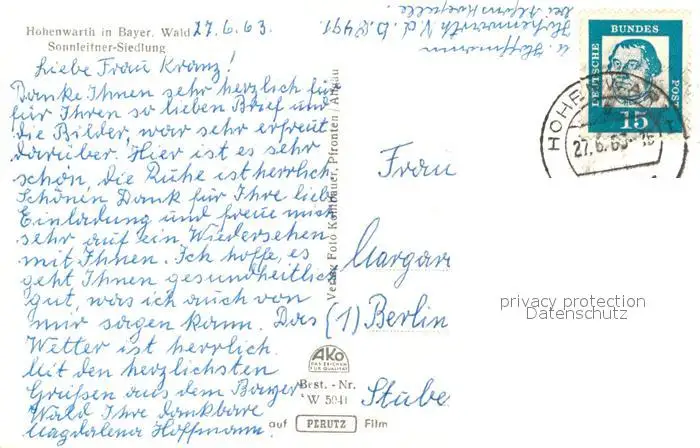 Hohenwarth in Bayer. Wald 27.6.63.
Sonnleitner-Siedlung
Liebe Frau Kranz!
Danke Ihnen sehr herzlich für
für Ihren so lieben Brief und
die Bilder, war sehr erfreut
darüber. Hier ist es sehr
schön, die Ruhe ist herrlich.
Schönen Dank für Ihre liebe
Einladung und freue mich
sehr auf ein Wiedersehen
mit Ihnen. Ich hoffe, es
geht Ihnen gesundheitlich
gut, was ich auch von
mir sagen kann. Das
Wetter ist herrlich.
Mit den herzlichsten
Grüßen aus dem Bayer.
Wald Ihre dankbare
Magdalena Hoffmann.
u. Hoffmann
Hohenwarth N.d.B. 8491
bei Alfons
Verlag Foto Kohlbauer, Pfronten / Allgäu
AKo
DAS ZEICHEN
FÜR QUALITÄT
Best. - Nr.
W 5041
auf PERUTZ Film
DEUTSCHE BUNDES POST
15
HOHENWART
27.6.63-16
Frau
Margar
(1) Berlin
Stube
privacy protection
Datenschutz